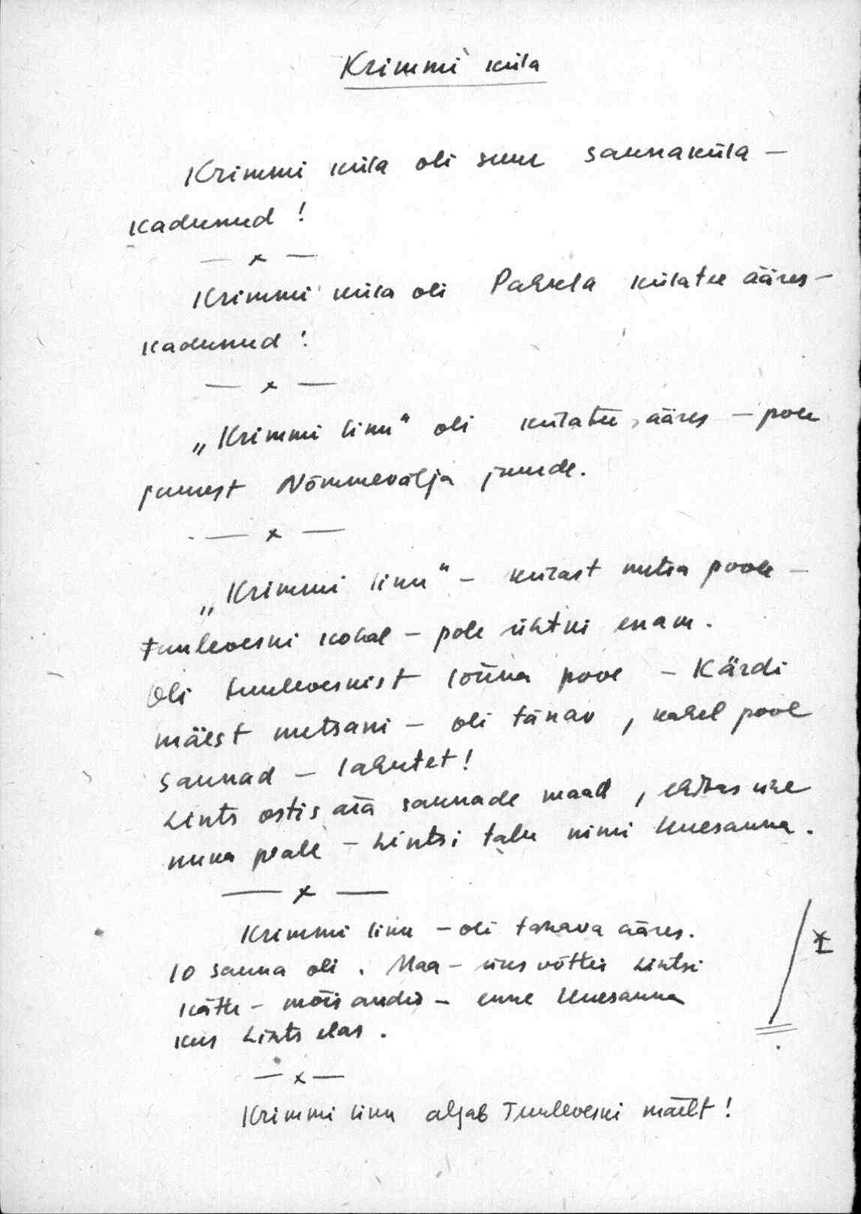 Krimmi küla
Krimmi küla oli suur saunaküla —
kadunud !
— x —
Krimmi küla oli Pahkla külatee ääres —
kadunud !
— x —
„Krimmi linn" oli külatee ääres — pole
juurest Nõmmevälja juurde.
— x —
„Krimmi linn" — külast metsa poole —
tuuleveski kohal — pole ühtki enam.
Oli tuuleveskist lõuna pool — Kärdi
mäest metsani — oli tänav , kahel pool
saunad — lahutet !
Lints ostis ära saunade maad , ehitas uue
peale — Lintsi talu nimi Uuesauna .
— x —
Krimmi linn — oli tänava ääres.
10 sauna oli . Maa — üks võttis Lintsi
kätte — mõis andis — enne Uuesauna
kus Lints elas .
— x —
Krimmi linn algab Tuuleveski mäelt !